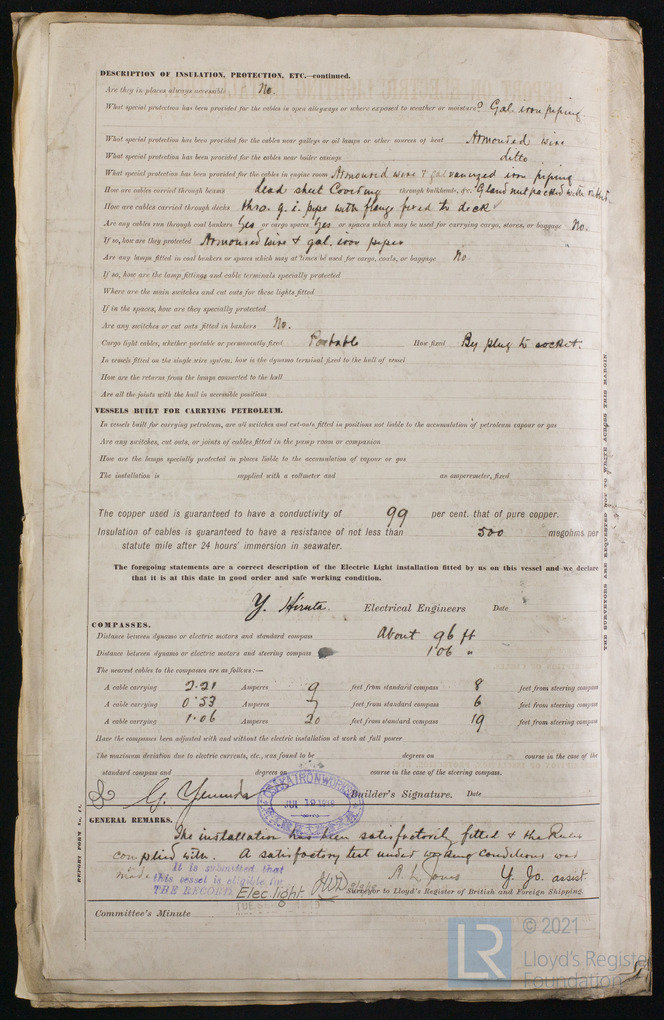 DESCRIPTION OF INSULATION, PROTECTION, ETC.—continued.
Are they in places always accessible No.
What special protection has been provided for the cables in open alleyways or where exposed to weather or moisture? Gal. iron piping
What special protection has been provided for the cables near galleys or oil lamps or other sources of heat Armoured wire
What special protection has been provided for the cables near boiler casings ditto
What special protection has been provided for the cables in engine room Armoured wire & galvanized iron piping
How are cables carried through beams dead sheet Covering through bulkheads, &c. Gland nut packed with rubber.
How are cables carried through decks thro. g. i. pipe with flange fixed to deck
Are any cables run through coal bunkers Yes or cargo spaces Yes or spaces which may be used for carrying cargo, stores, or baggage No.
If so, how are they protected Armoured wire & gal. iron pipes
Are any lamps fitted in coal bunkers or spaces which may at times be used for cargo, coals, or baggage No.
If so, how are the lamp fittings and cable terminals specially protected
Where are the main switches and cut outs for these lights fitted
If in the spaces, how are they specially protected
Are any switches or cut outs fitted in bunkers No.
Cargo light cables, whether portable or permanently fixed Portable How fixed By plug to socket.
In vessels fitted on the single wire system, how is the dynamo terminal fixed to the hull of vessel
How are the returns from the lamps connected to the hull
Are all the joints with the hull in accessible positions
VESSELS BUILT FOR CARRYING PETROLEUM.
In vessels built for carrying petroleum, are all switches and cut-outs fitted in positions not liable to the accumulation of petroleum vapour or gas
Are any switches, cut outs, or joints of cables fitted in the pump room or companion
How are the lamps specially protected in places liable to the accumulation of vapour or gas
The installation is supplied with a voltmeter and an amperemeter, fixed
The copper used is guaranteed to have a conductivity of 99 per cent. that of pure copper.
Insulation of cables is guaranteed to have a resistance of not less than 500 megohms per
statute mile after 24 hours' immersion in seawater.
The foregoing statements are a correct description of the Electric Light installation fitted by us on this vessel and we declare
that it is at this date in good order and safe working condition.
Y. Hiruta. Electrical Engineers Date
COMPASSES.
Distance between dynamo or electric motors and standard compass About 96 ft
Distance between dynamo or electric motors and steering compass 106 "
The nearest cables to the compasses are as follows:—
A cable carrying 2.21 Amperes 9 feet from standard compass 8 feet from steering compass
A cable carrying 0.53 Amperes 7 feet from standard compass 6 feet from steering compass
A cable carrying 1.06 Amperes 20 feet from standard compass 19 feet from steering compass
Have the compasses been adjusted with and without the electric installation at work at full power
The maximum deviation due to electric currents, etc., was found to be degrees on course in the case of the
standard compass and degrees on course in the case of the steering compass.
OSAKA IRON WORKS
JUL 19 1918
Builder's Signature. Date
GENERAL REMARKS.
The installation has been satisfactorily fitted & the Rules
complied with. A satisfactory test under working conditions was
made
It is submitted that
this vessel is eligible for
THE RECORD Elec. light.
A. L. Jones Y. Jo. assist.
Surveyor to Lloyd's Register of British and Foreign Shipping.
Committee's Minute
REPORT FORM No. 11.
THE SURVEYORS ARE REQUESTED NOT TO WRITE ACROSS THIS MARGIN.
LR
© 2021
Lloyd's Register
Foundation